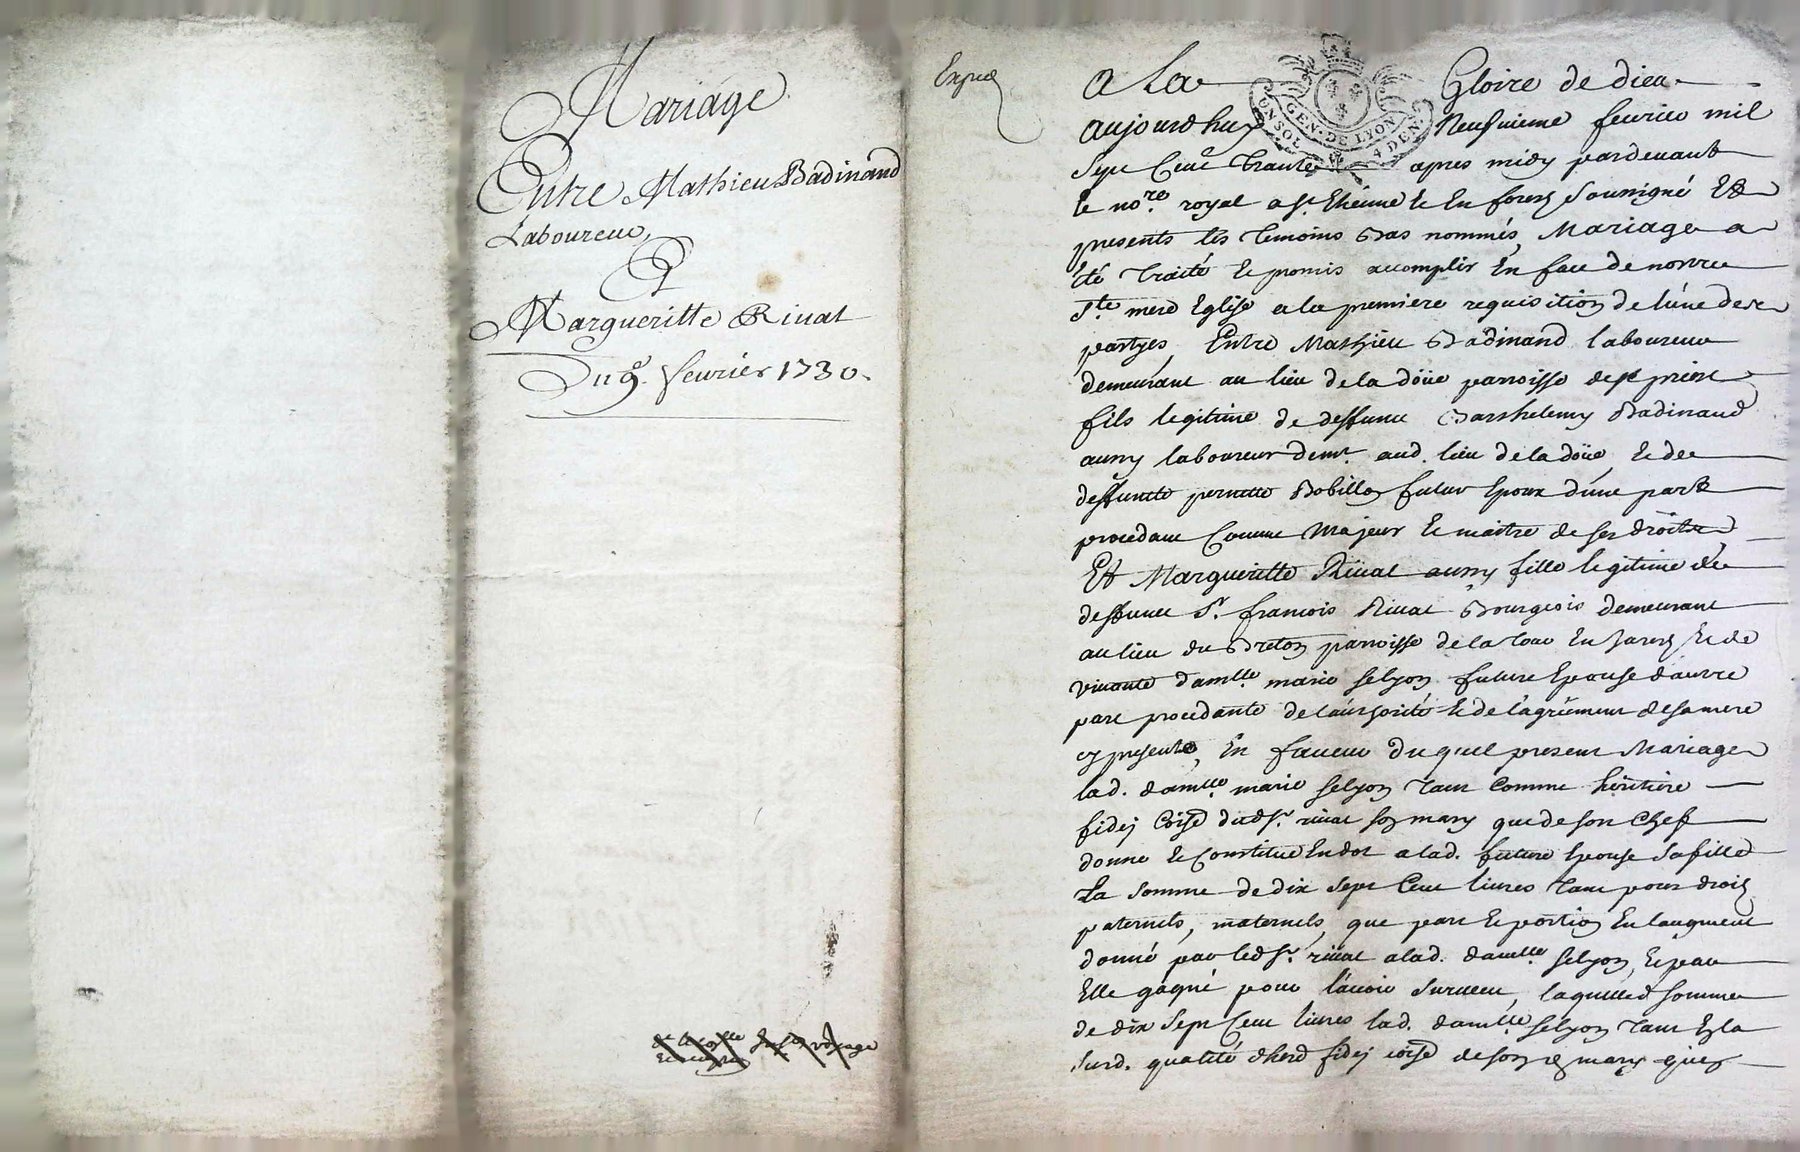 Mariage
Entre Mathieu Badinand
Laboureur,
Et
Margueritte Rivat
Du 9e. fevrier 1730.
Exped
A La Gloire de dieu
GEN. DE LYON
UN SOL 4 DEN.
aujourdhuy Neufvieme fevrier mil
Sept Cent Trante apres midy pardevant
le nore. royal a St. Etienne le En forez Soussigné Et
presents les temoins Bas nommés, Mariage a
été Traité & promis accomplir En face de nostre
Ste mere Eglise a la premiere requisition de l'une des
partyes, Entre Mathieu Badinand laboureur
demeurant au lieu de la döüe parroisse de St priest
fils legitime de deffunt Barthelemy Badinand
aussy laboureur demt. aud. lieu de la döüe, & de
deffuncte pernette Bobillon futur Epoux d'une part
procedant Comme Majeur & maitre de ses droits
Et Margueritte Rivat aussy fille legitime de
deffunct Sr. francois Rivat Bourgeois demeurant
au lieu du Breton parroisse de la tour En Jarez & de
vivante damlle. marie selyon future Epouse d'autre
part procedante de l'authorité & de l'agrément de sa mere
cy presente, En faveur du quel present Mariage
lad. damlle. marie selyon tant Comme héritiere
fidej Coise dud Sr. rivat son mary que de son Chef
donne & Constitue En dot a lad. future Epouse Sa fille
La Somme de dix Sept Cent livres tant pour droits
paternels, maternels, que part & portion En l'augment
donné par led Sr. rivat a lad. damlle. selyon, & par
Elle gagné pour l'avoir Survecu, laquelle Somme
de dix Sept Cent livres lad. damlle. selyon tant En la
Surd. qualité d'herd fidej coise de son d mary que